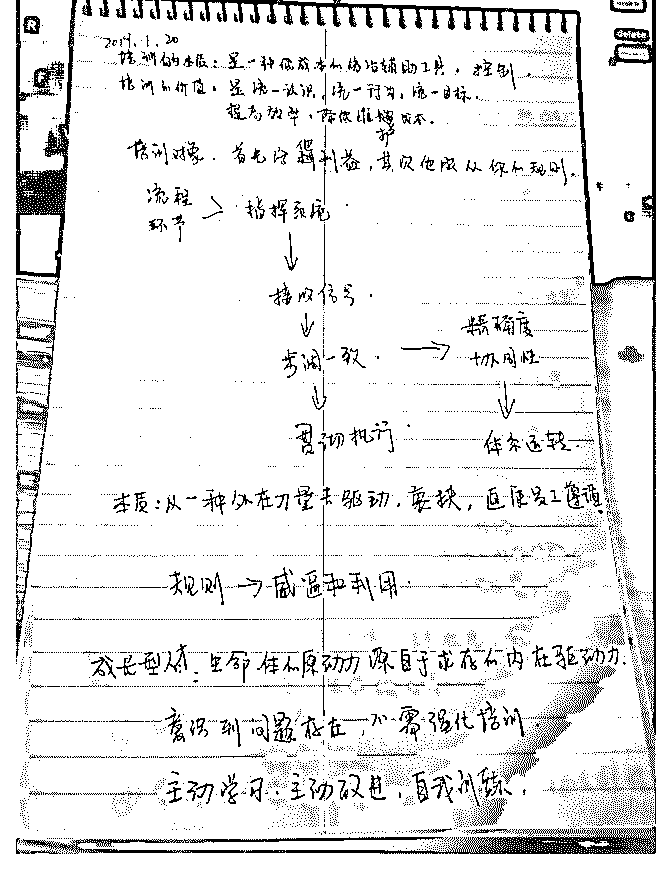 2019.1.20
培训的本质：是一种低成本的统治辅助工具，控制.
培训的价值：是统一认识，统一行为，统一目标.
提高效率，降低维护成本.
培训对象.首先注得利益，其次他服从你的规则.
流程
环节 > 指挥系统.
↓
接收信号.
↓
步调一致. → 精确度
协同性
↓ ↓
贯彻执行 体系运转.
本质：从一种外在力量去驱动，要挟，迫使员工遵循.
规则 → 威逼和利用.
成长型人才：生命体的原动力源自于求存的内在驱动力.
意识到问题存在，不需强化培训
主动学习.主动改进，自我训练.